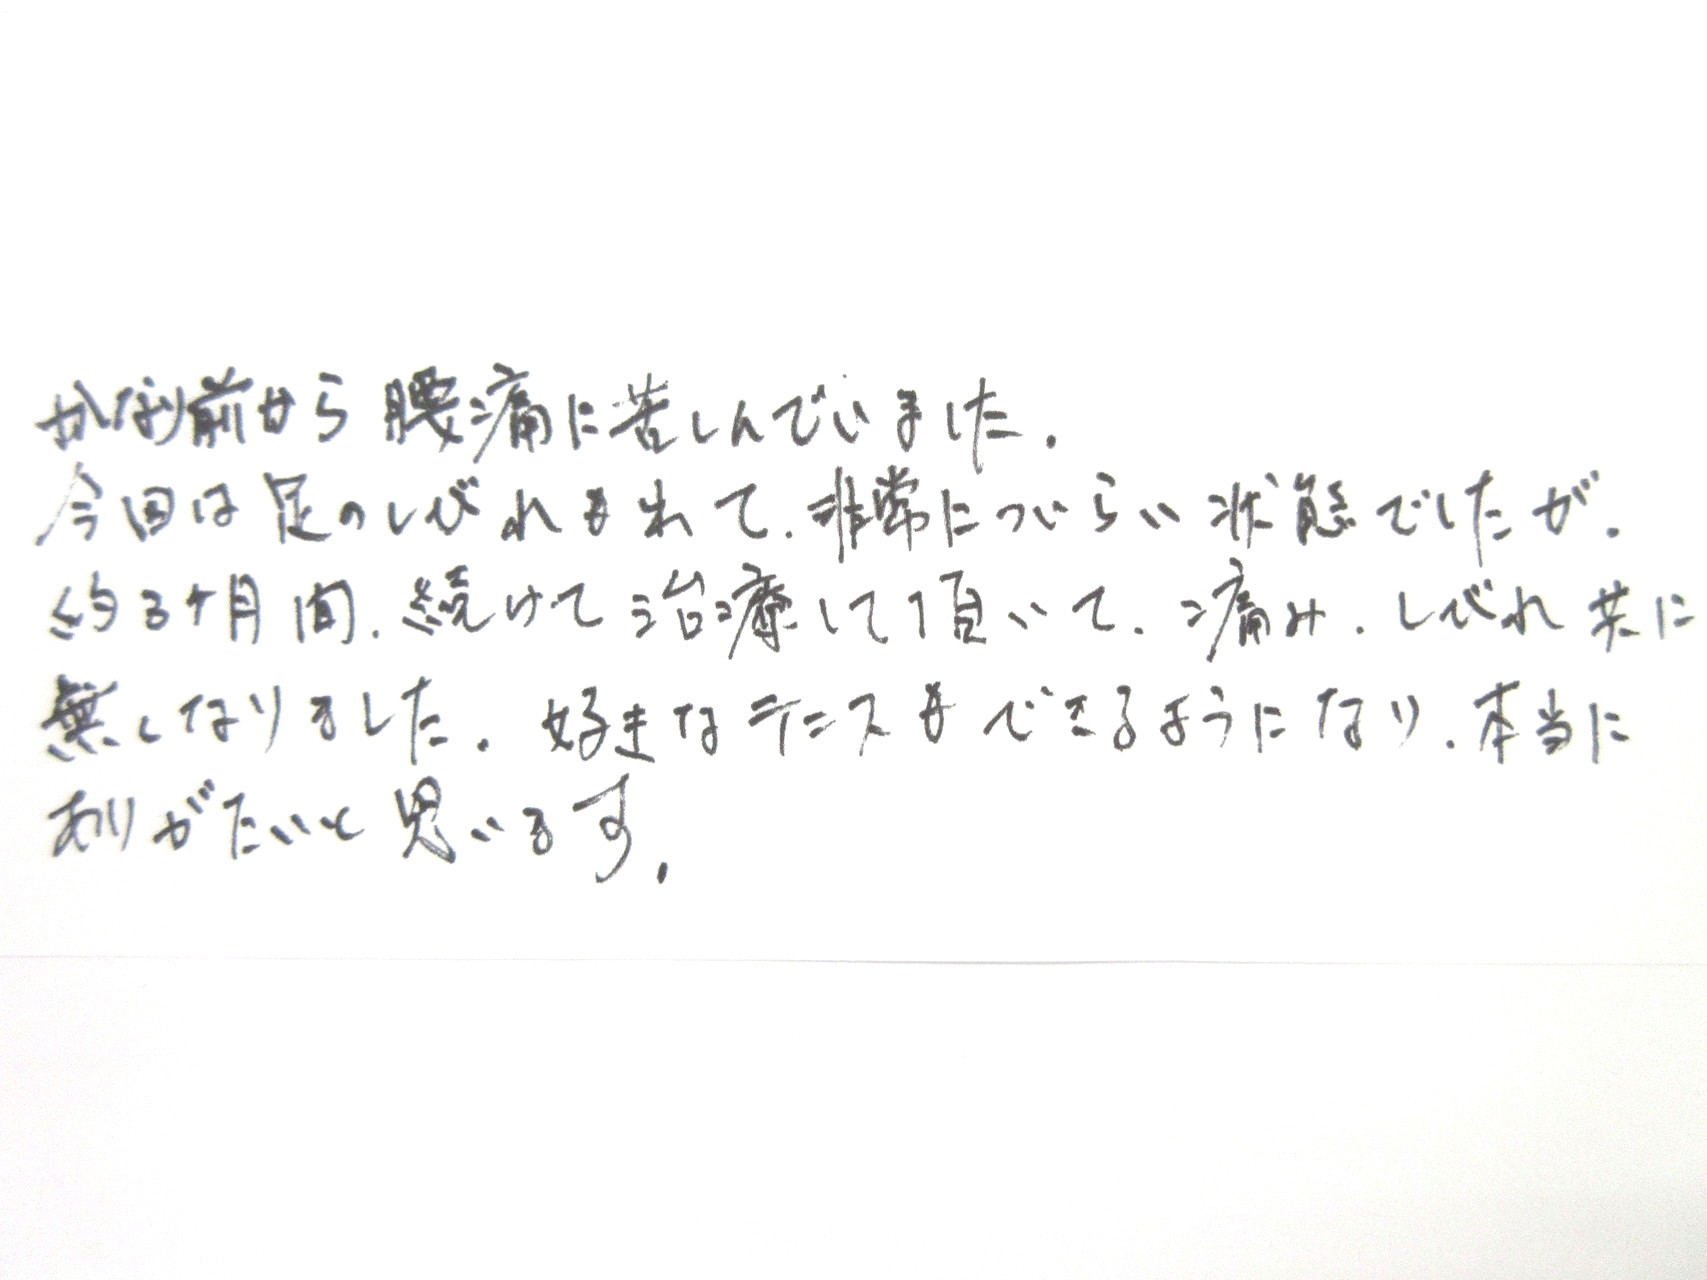 かなり前から腰痛に苦しんでいました.
今回は足のしびれもれて.非常につらい状態でしたが.
約3ヶ月間.続けて治療して頂いて.痛み.しびれ共に
無くなりました.好きなテニスもできるようになり.本当に
ありがたいと思います.